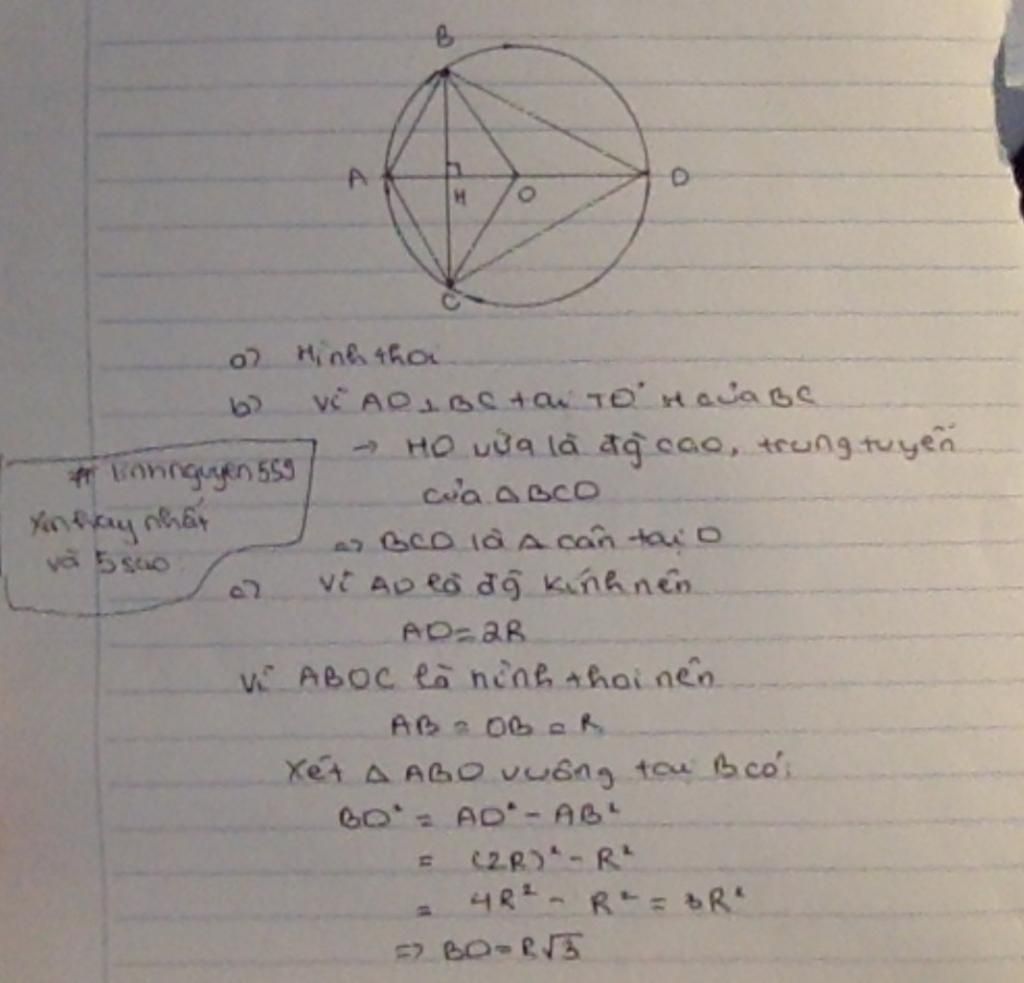 B
A
H
O
D
C
a) Hình thoi
b) Vì AD ⊥ BC tại TĐ H của BC
→ HD vừa là đg cao, trung tuyến
của ΔBCD
=> BCD là Δ cân tại D
# linhnguyen559
xin hay nhất
và 5 sao
c) Vì AD là đg kính nên
AD = 2R
Vì ABOC là hình thoi nên
AB = OB = R
Xét Δ ABD vuông tại B có:
BD² = AD² - AB²
= (2R)² - R²
= 4R² - R² = 3R²
=> BD = R√3